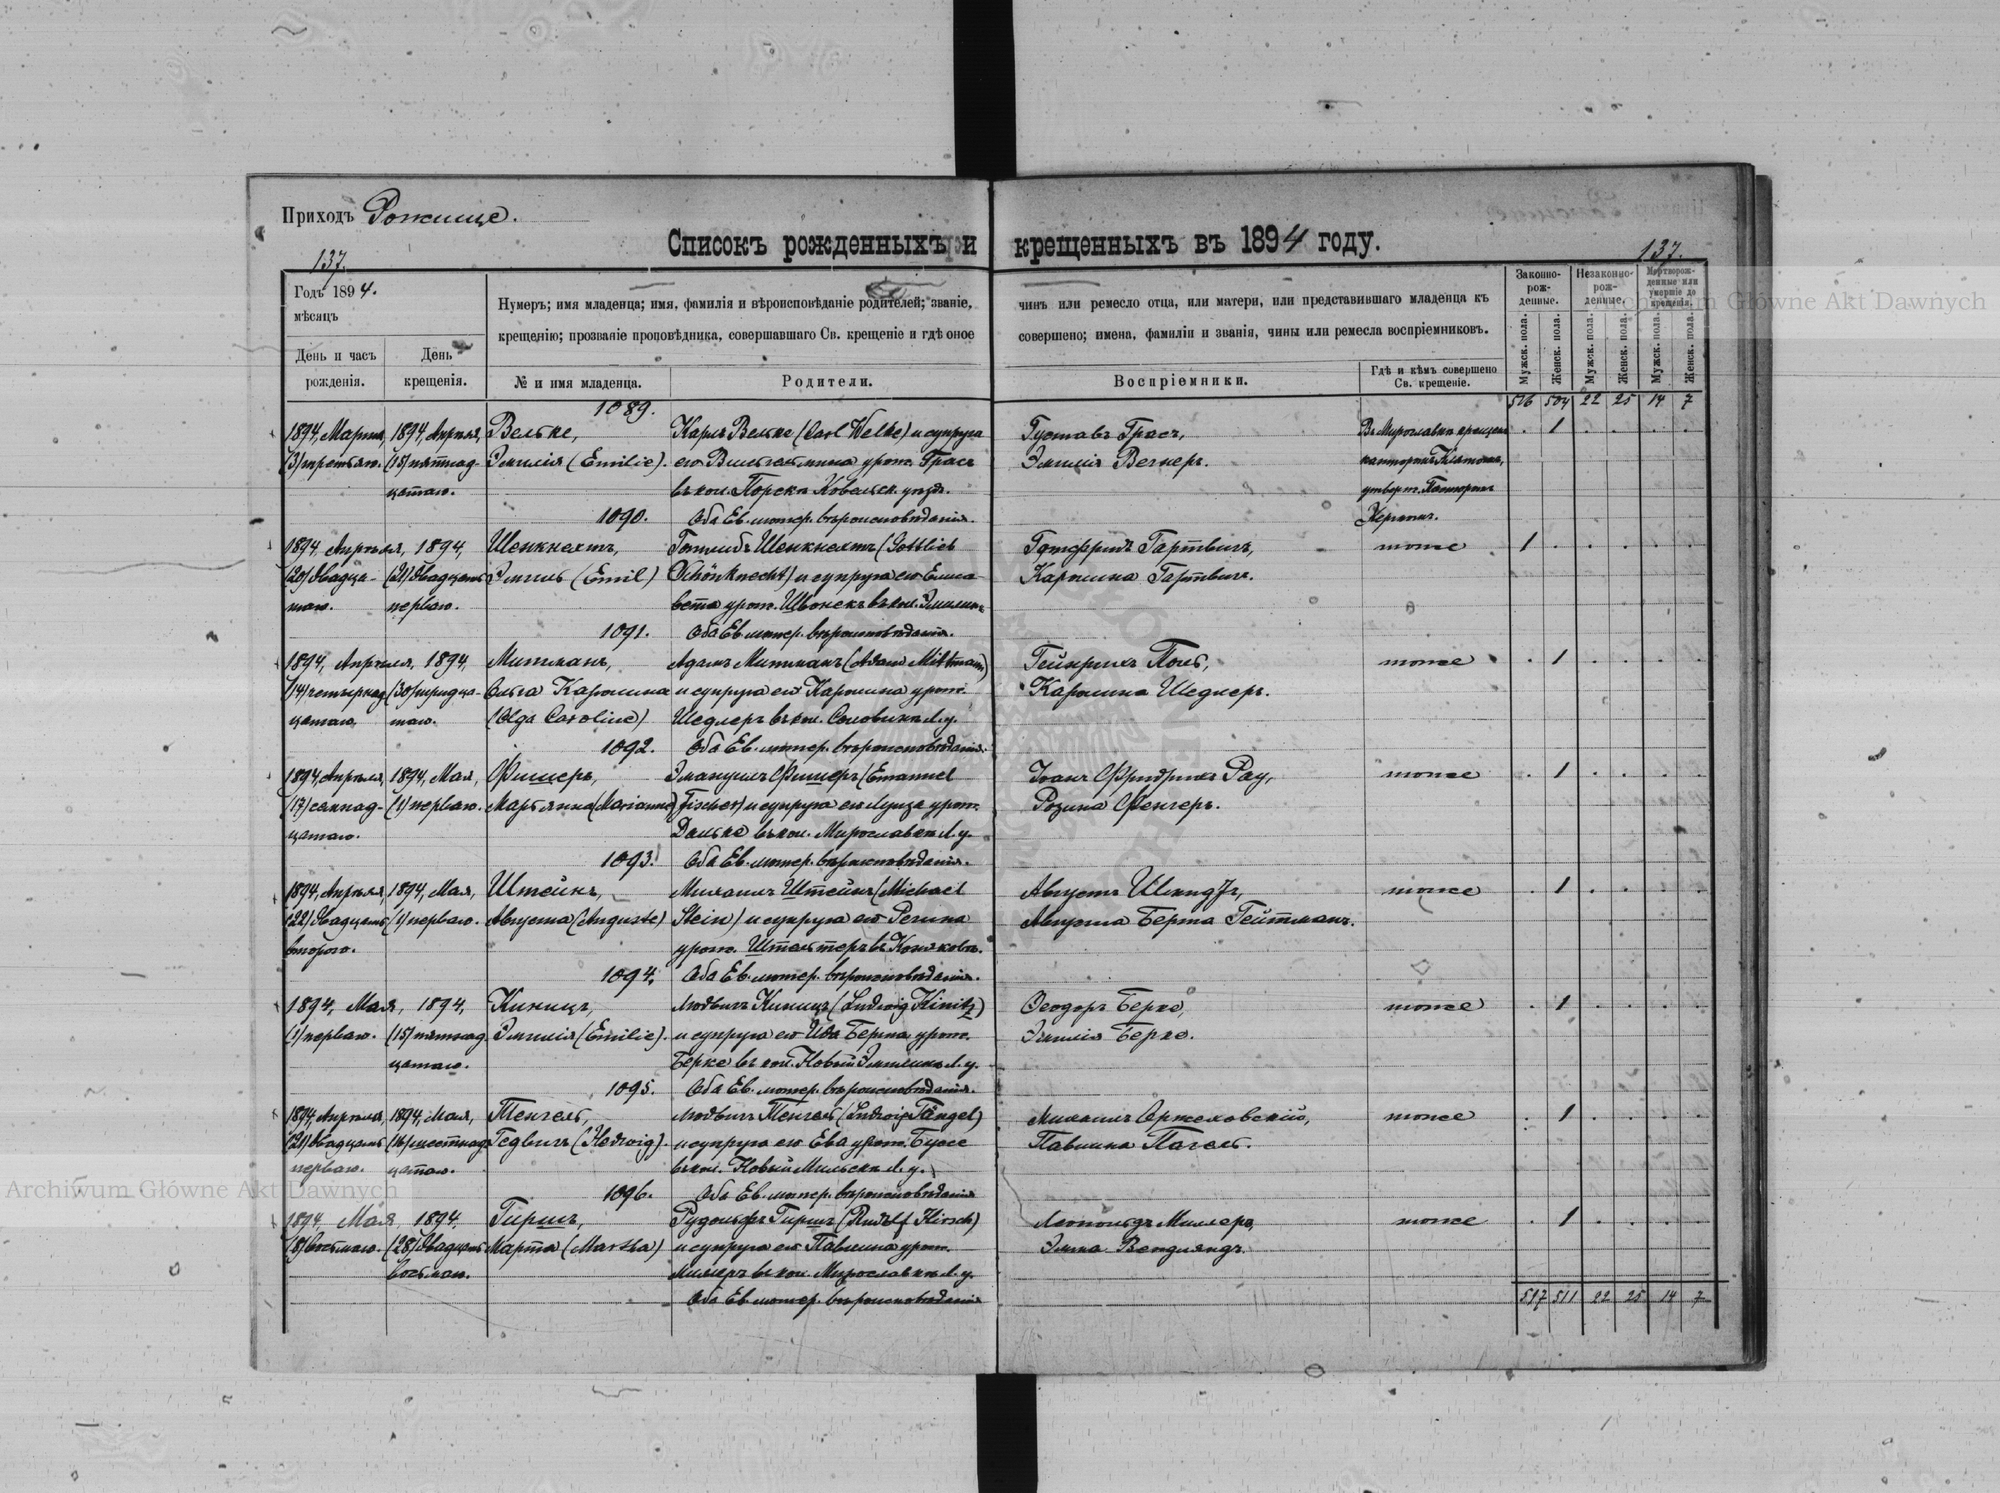 Приходъ Рожище.
Списокъ рожденныхъ и крещенныхъ въ 1894 году.
137.
137.
Годъ 1894.
мѣсяцъ
День и часъ рожденія.
День крещенія.
Нумеръ; имя младенца; имя, фамилія и вѣроисповѣданіе родителей; званіе, чинъ или ремесло отца, или матери, или представившаго младенца къ
крещенію; прозваніе проповѣдника, совершавшаго Св. крещеніе и гдѣ оное совершено; имена, фамиліи и званія, чины или ремесла воспріемниковъ.
№ и имя младенца.
Родители.
Воспріемники.
Гдѣ и кѣмъ совершено Св. крещеніе.
Законно-рож-денные.
Незаконно-рож-денные.
Мертворож-денные или умершіе до крещенія.
Мужск. пола.
Женск. пола.
Мужск. пола.
Женск. пола.
Мужск. пола.
Женск. пола.
516 504 22 25 14 7
1089.
1894, Марта, 1894, Апрѣля, Вельке, Карлъ Вельке (Carl Welke) и супруга Густавъ Грасъ, . 1 . . . .
(3) третьяго. (15) пятнад- Эмилія (Emilie). его Вильгельмина урож. Грасъ Эмилія Вегнеръ.
цатаго. въ кол. Порскъ Ковельск. уѣзд.
1090. Оба Ев. лютер. вѣроисповѣданія.
1894, Апрѣля, 1894, Шенкнехтъ, Готлибъ Шенкнехтъ (Gottlieb Готфридъ Гартвигъ, тоже 1 . . . . .
(20) двадца- (21) двадцать Эмиль (Emil) Schönknecht) и супруга его Елиза- Каролина Гартвигъ.
таго. перваго. вета урож.
1091. Оба Ев. лютер. вѣроисповѣданія.
1894, Апрѣля, 1894, Митманъ, Адамъ Митманъ (Adam Mittmann) Гейнрихъ Поль, тоже . 1 . . . .
(14) четырнад- (30) тридца- Ольга Каролина и супруга его Каролина урож. Каролина Шедлеръ.
цатаго. таго. (Olga Caroline) Шедлеръ въ кол.
1092. Оба Ев. лютер. вѣроисповѣданія.
1894, Апрѣля, 1894, Мая, Фишеръ, Эмануилъ Фишеръ (Emanuel Іоанъ Фридрихъ Рау, тоже . 1 . . . .
(17) семнад- (1) перваго. Марьянна (Marianne) Fischer) и супруга его Луиза урож. Розина Фенгеръ.
цатаго. Дальке въ кол. Мирославка Л. у.
1093. Оба Ев. лютер. вѣроисповѣданія.
1894, Апрѣля, 1894, Мая, Штейнъ, Михаилъ Штейнъ (Michael Августъ тоже . 1 . . . .
(22) двадцать (1) перваго. Августа (Auguste) Stein) и супруга его Регина Августа Берта Гейтманъ.
второго. урож.
1094. Оба Ев. лютер. вѣроисповѣданія.
1894, Мая, 1894, Киницъ, Людвигъ Киницъ (Ludwig Kinitz) Феодоръ Берке, тоже . 1 . . . .
(1) перваго. (15) пятнад- Эмилія (Emilie). и супруга его Ида Берта урож. Эмилія Берке.
цатаго. Берке въ кол. Новый Эмилинъ Л. у.
1095. Оба Ев. лютер. вѣроисповѣданія.
1894, Апрѣля, 1894, Мая, Тенгель, Людвигъ Тенгель (Ludwig Tängel) Михаилъ Оржеховскій, тоже . 1 . . . .
(21) двадцать (16) шестнад- Гедвигъ (Hedwig). и супруга его Ева урож. Буссе Павлина Пагель.
перваго. цатаго. въ кол. Новый Мильскъ Л. у.
1096. Оба Ев. лютер. вѣроисповѣданія
1894, Мая, 1894, Гиршъ, Рудольфъ Гиршъ (Rudolf Hirsch) Леопольдъ Миллеръ, тоже . 1 . . . .
(8) восьмаго. (28) двадцать Марта (Martha) и супруга его Павлина урож. Эмма Вендландъ.
восьмаго. Миллеръ въ кол. Мирославка Л. у.
Оба Ев. лютер. вѣроисповѣданія
517 511 22 25 14 7
Archiwum Główne Akt Dawnych
Archiwum Główne Akt Dawnych